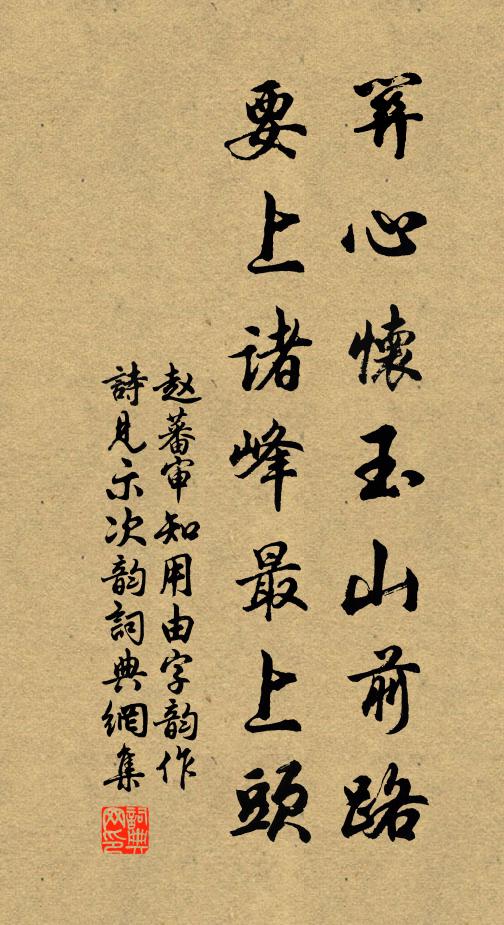 关心懷玉山前路
要上诸峰最上頭
赵蕃审知用由字韵作
詩見示次韵詞典網集
詞典
网印